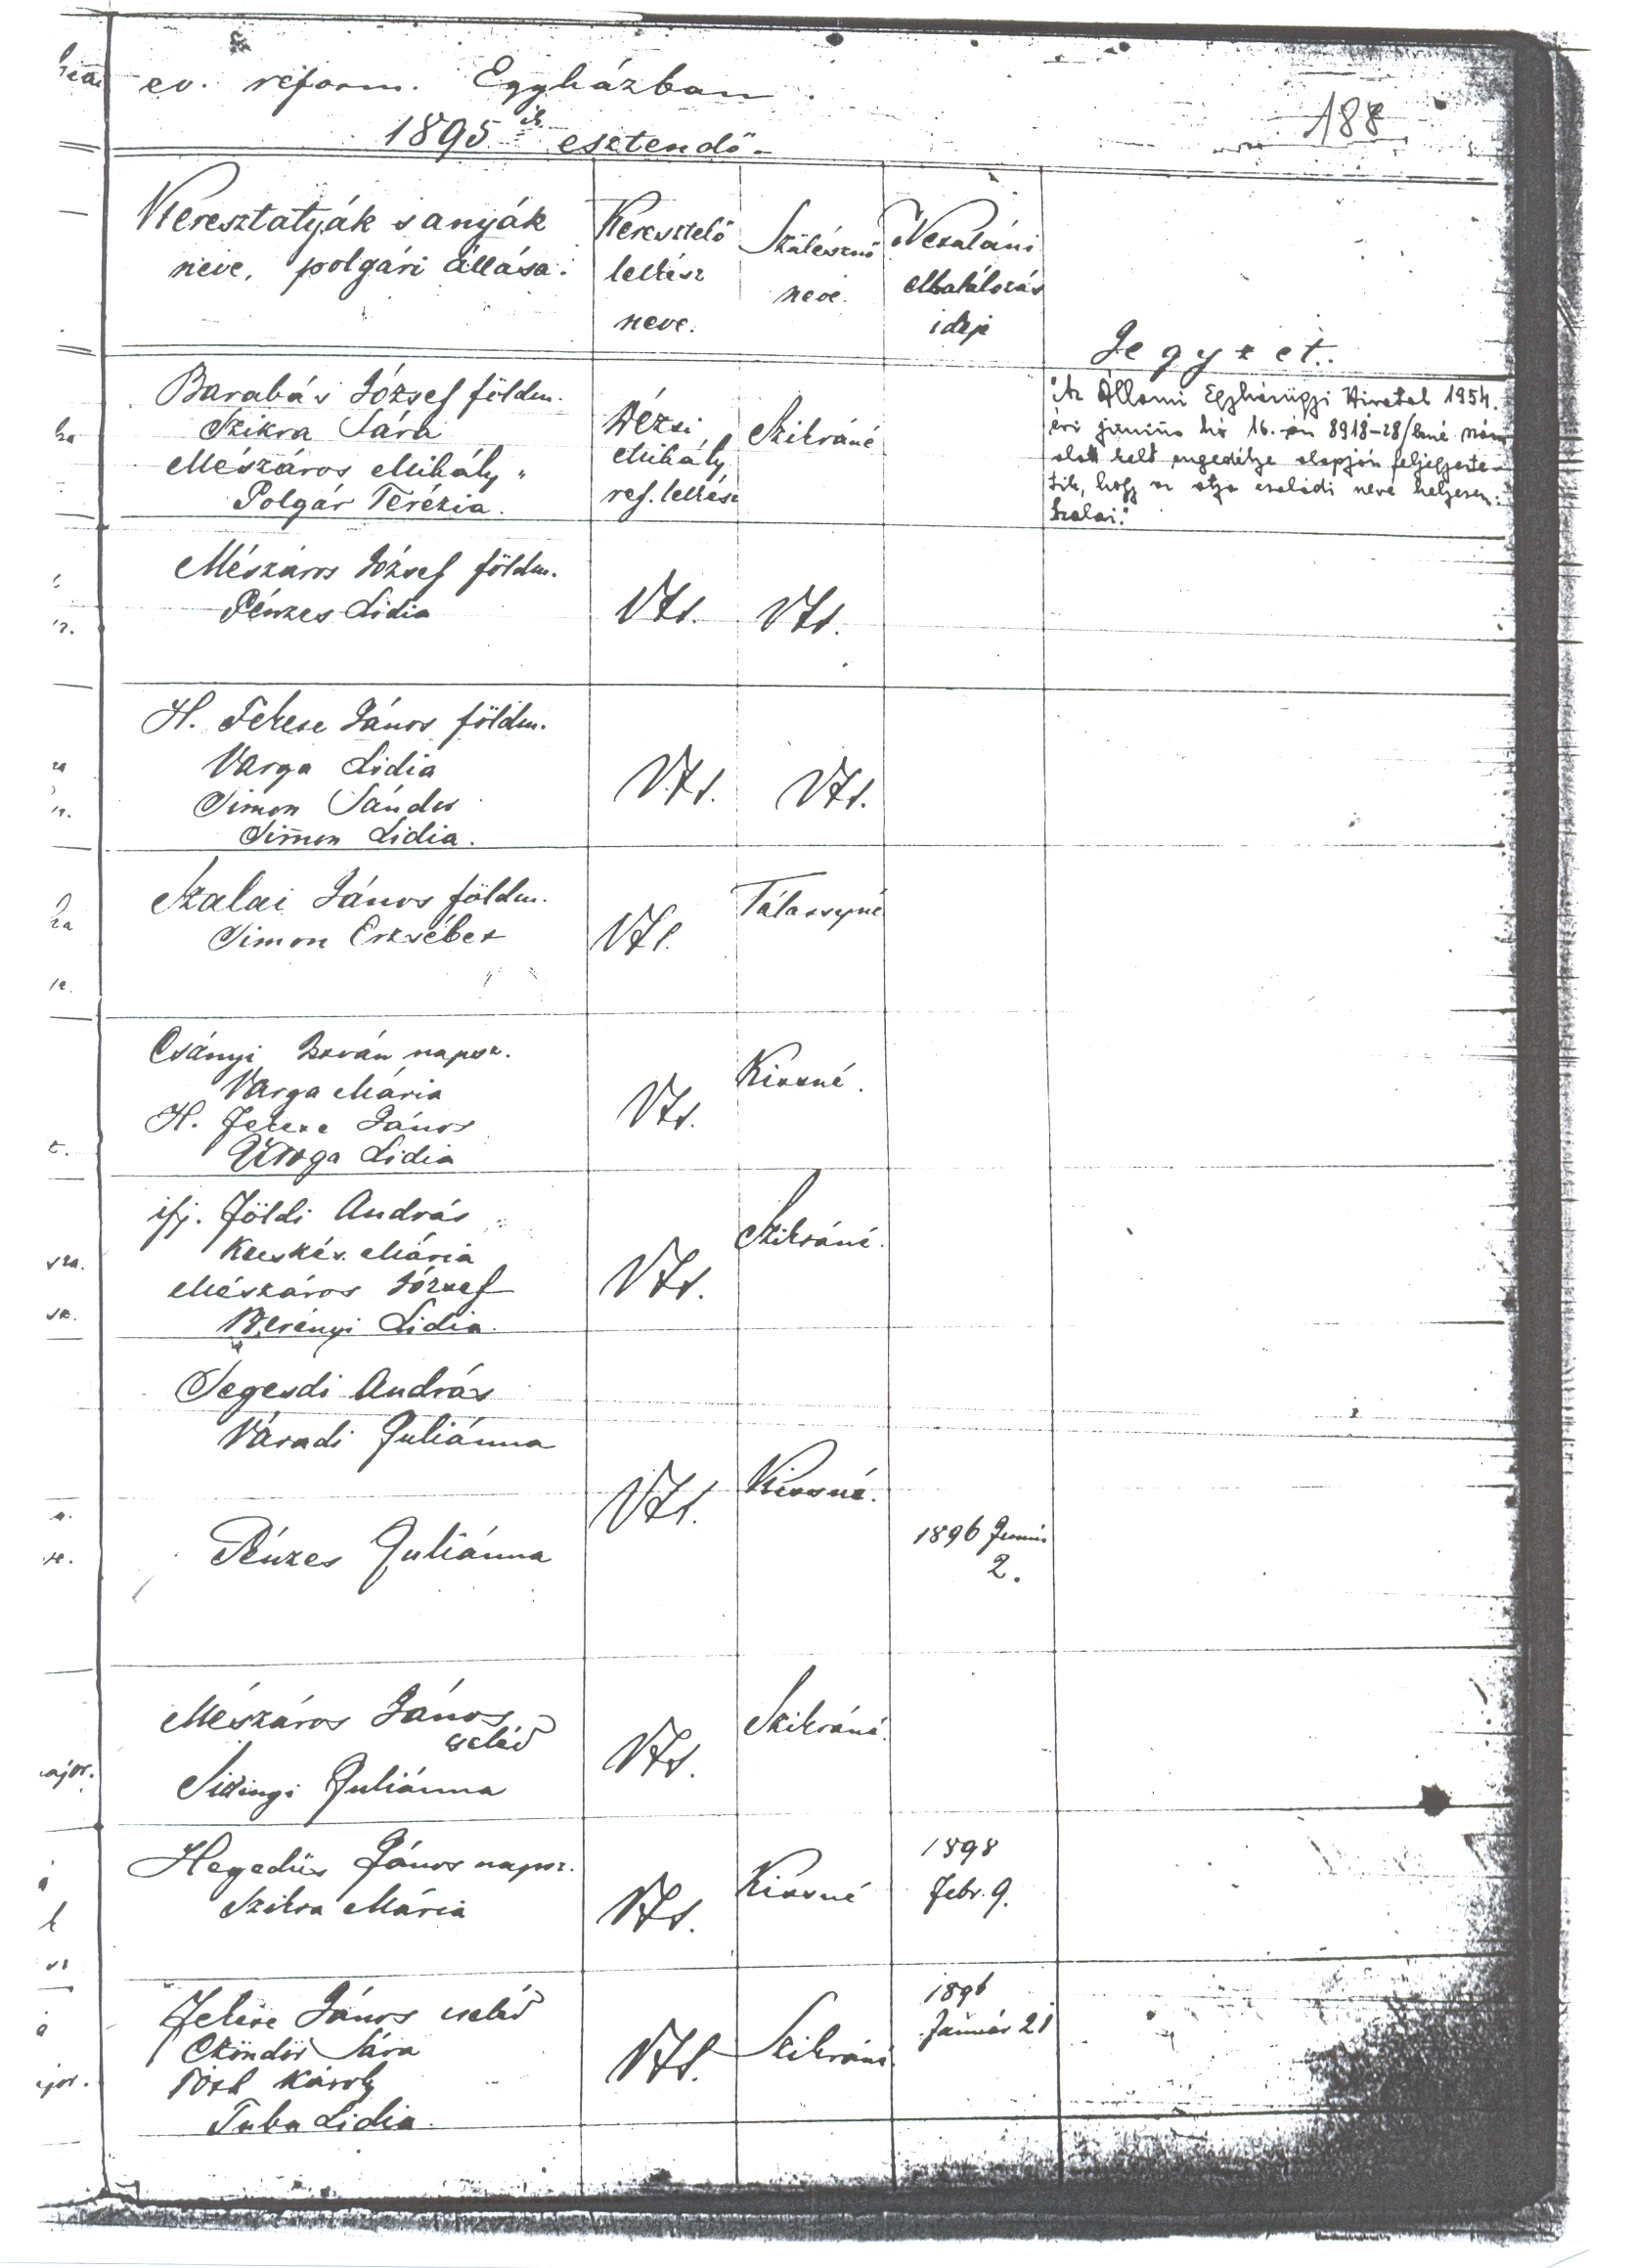 ev. reform. Egyházban.
188
1895 ik esztendő-
Keresztatyák s anyák
neve, polgári állása.
Keresztelő
lelkész
neve.
Szülésznő
neve.
Netaláni
elhalálozás
ideje
Jegyzet.
Barabás József földm.
Szikra Sára
Mészáros Mihály "
Polgár Terézia.
Mihály
ref. lelkész
Szikráné
"Az Állami Egyházügyi Hivatal 1954.
évi június hó 16.-án 8918-28/ szám
alatt kelt engedélye alapján feljegyezte-
tik, hogy az atya családi neve helyesen:
Szalai."
Mészáros József földm.
Pénzes Lidia
H. Fekete János földm.
Varga Lidia
Simon Sándor
Simon Lidia.
Szalai János földm.
Simon Erzsébet
Tálassyné
Csányi István napsz.
Varga Mária
H. Fekete János
Varga Lidia
Kissné.
ifj. Földi András
Kecskés Mária
Mészáros József
Berényi Lidia.
Szikráné.
Segesdi András
Váradi Juliánna
Pénzes Juliánna
Kissné.
1896 Junius
2.
Mészáros János
cseléd
Juliánna
Szikráné.
Hegedüs János napsz.
Szikra Mária
Kissné
1898
Febr. 9.
Fekete János cseléd
Czöndör Sára
Tóth Károly
Tuba Lidia.
Szikráné
1896
Január 21